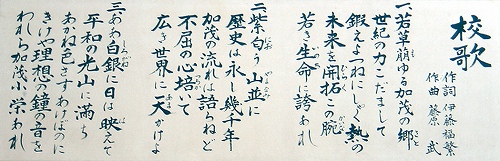 校歌
作詞 伊藤福繁
作曲 藤原 武
一、若草萠ゆる加茂の郷
世紀の力こだまして
鍛えよつねにしゃく熱の
未来を開拓くこの腕
若き生命に誇あれ
二、紫匂う 山並に
歴史は永し幾千年
加茂の流れは語らねど
不屈の心培いて
広き世界に天かけよ
三、あゝ白銀に日は映えて
平和の光山に満ち
あかね色さすあけぼのに
きけや理想の鐘の音を
われら加茂小栄あれ